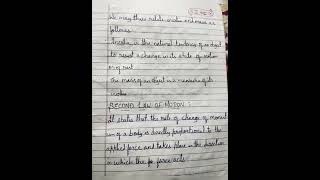 We may thus relate inertia and mass as
follows
Inertia is the natural tendency of an object
to resist a change in its state of motion
or of rest.
The mass of an object is a measure of its
inertia
SECOND LAW OF MOTION :
It states that the rate of change of moment
um of a body is directly proportional to the
applied force and takes place in the direction
in which the fo force acts.